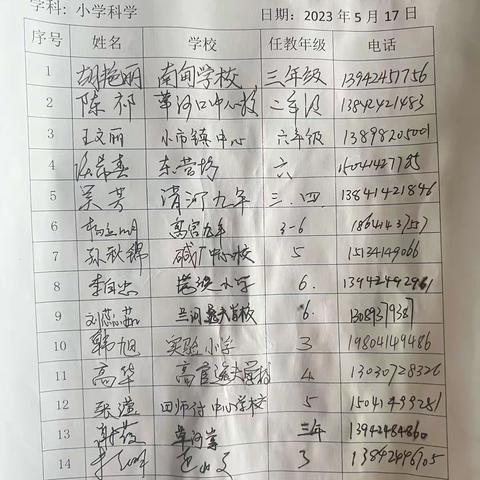 学科：小学科学 日期：2023年5月17日
序号 姓名 学校 任教年级 电话
1 胡艳丽 南甸学校 三年级 13942457756
2 陈祁 草河口中心校 二年级 13842421483
3 王文丽 小市镇中心 六年级 13898205001
4 东营坊 六 15041427785
5 吴芳 清河九年 三.四 13841421846
6 高官九年 3-6 18641437557
7 孙秋锦 碱厂中心校 5 15134149066
8 李自忠 小学 6. 13942492981
9 刘蕊茹 6. 13089379387
10 韩旭 实验小学 3 19804149486
11 高华 高官 学校 4 13030728326
12 张滢 田师付中心学校 5 15041499281
13 草河掌 三年 13942484860
14 3 13842496705